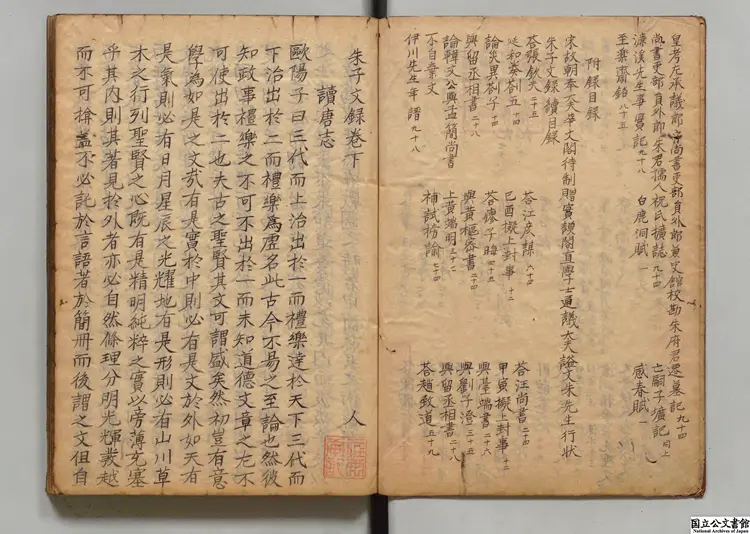 皇考左承議郎守尚書吏部員外郎兼史館校勘朱府君遷墓記 九十四
尚書吏部員外郎朱君孺人祝氏壙誌 九十四 亡嗣子壙記 同上
濂溪先生事實記 九十八 白鹿洞賦 一 感春賦 一
至樂齋銘 八十五
附錄目錄
宋故朝奉大夫華文閣待制贈寶謨閣直學士通議大夫謚文朱先生行狀
朱子文錄續目錄
荅張欽夫 三十五 荅江彥謀 六十四 荅汪尚書 二十四
延和奏劄五 十四 己酉擬上封事 十二 甲寅擬上封事 十二
論災異劄子 十四 荅廖子晦 四十五 與臺端書 二十六
與留丞相書 二十八 與黃樞密書 二十四 與劉子澄 三十五
論韓文公與孟簡尚書 上黃端明 二十四 與留丞相書 二十八
不自棄文 補試榜諭 七十四 荅趙致道 五十九
伊川先生年譜 九十八
朱子文錄卷下 人
讀唐志
歐陽子曰三代而上治出於一而禮樂達於天下三代而
下治出於二而禮樂爲虛名此古今不易之至論也然彼
知政事禮樂之不可不出於一而未知道德文章之尤不
可使出於二也夫古之聖賢其文可謂盛矣然初豈有意
學為如是之文哉有是實於中則必有是文於外如天有
是氣則必有日月星辰之光耀地有是形則必有山川草
木之行列聖賢之心既有是精明純粹之實以旁薄充塞
乎其內則其著見於外者亦必自然條理分明光輝發越
而不可揜盖不必託於言語著於簡冊而後謂之文但自
国立公文書館
National Archives of Japan